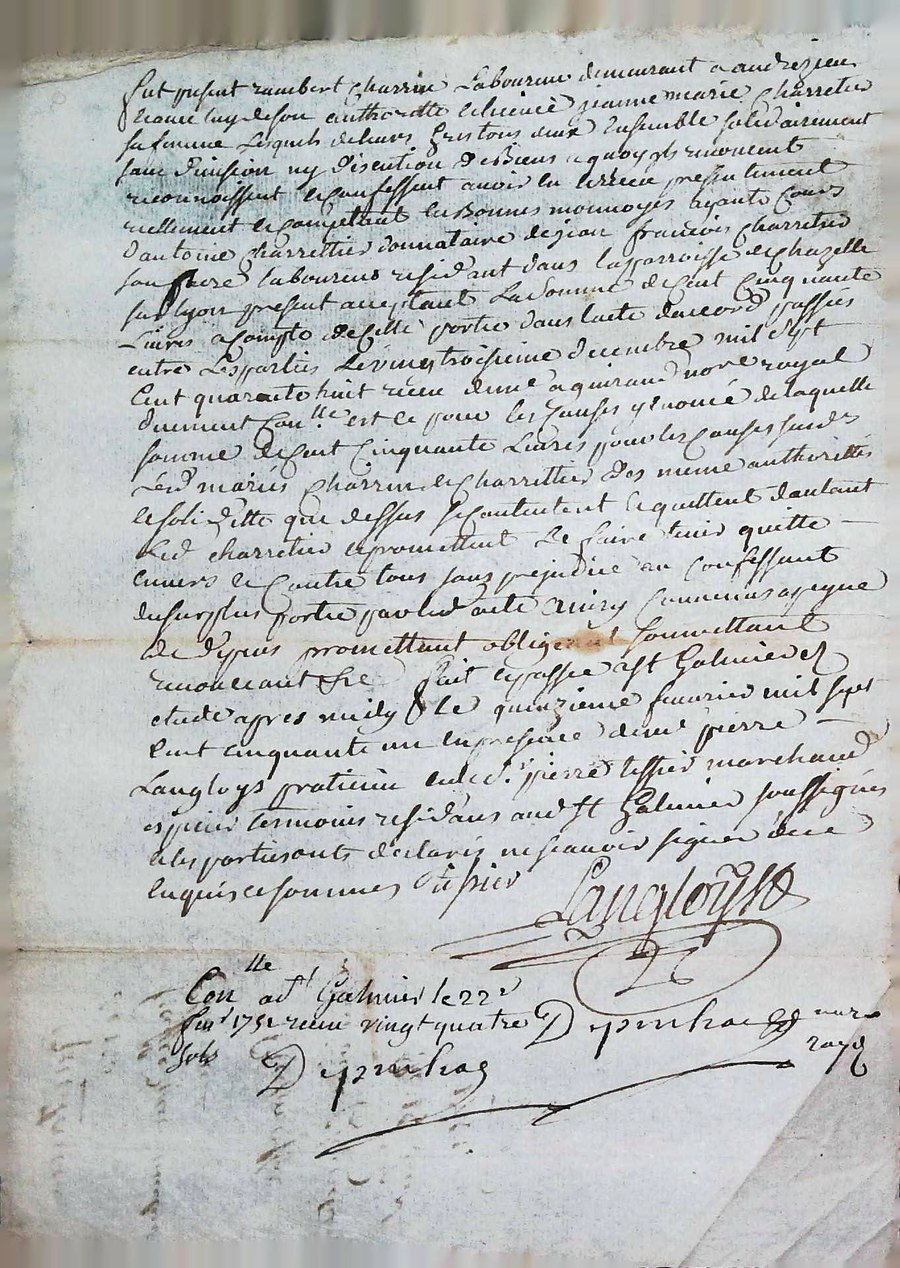 fut present rambert Charrin Laboureur demeurant a andrezieu
Lequel de son authoritte a licencié jeanne marie Charretier
sa femme Lesquels de leurs grés tous deux Ensemble solidairement
sans division ny discution de Biens a quoy ils renoncent
reconnoissent et Confessent avoir eu et receu presentement
reellement et Comptant en Bonnes monnoyes ayants Cours
d'antoine Charrettier donnataire de jean francois Charretier
son pere laboureur residant dans la parroisse de Chazelle
sur Lyon present acceptant La somme de Cent Cinquante
Livres a Compte de Celle portée dans Lacte daccord passé
entre Les parties Le vingt troisieme decembre mil sept
Cent quarante huit receu de me aguiraud nore royal
duement Con.lle est ce pour les Causes y enoncé de laquelle
somme de Cent Cinquante Livres pour les Causes susdes
Lesd mariés Charrin et Charrettier des meme authorittés
et soliditte que dessus se Contentent et quittent dautant
Led charretier et promettent Le faire tenir quitte
envers et Contre tous sans prejudice au Confessant
du surplus portée par led acte
de depens promettant obligeant soumettant
renonceant &c fait et passé a St Galmier en
etude apres midy Le quinzieme fevrier mil sept
Cent cinquante un en presence de me pierre
Langloys praticien et de sr. pierre tessier marchand
espicier tesmoins residans aud St Galmier soussignés
et les parties onts declarés ne scavoir signer de ce
enquis et sommés tessier Langloys
Con.lle a St Galmier le 22e
fevr 1751 receu vingt quatre
sols
nore
royal